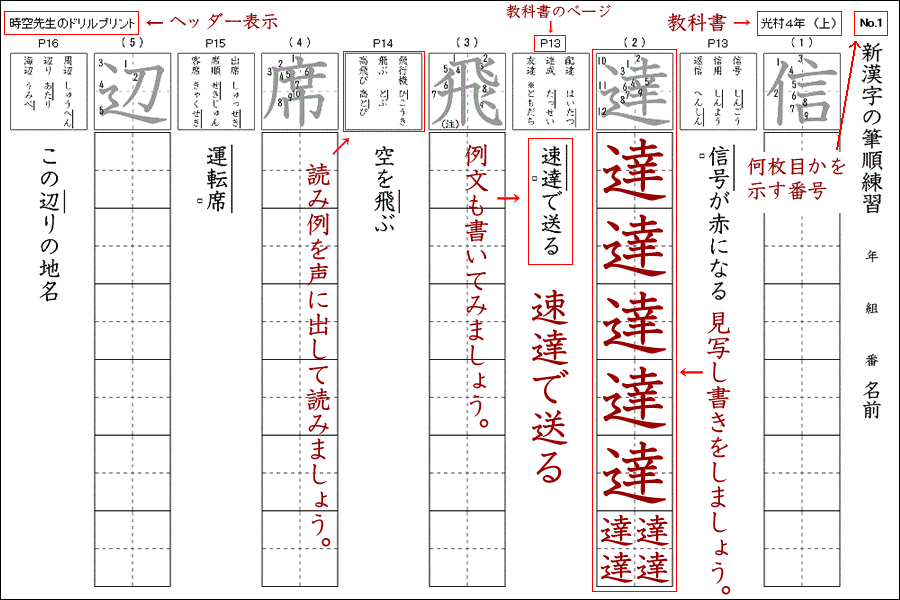 時空先生のドリルプリント
ヘッダー表示
教科書のページ
教科書
光村4年（上）
No.1
新漢字の筆順練習　年　組　番　名前
何枚目かを
示す番号
（1）
信
P13
信号　しんごう
信用　しんよう
返信　へんしん
信号が赤になる
見写し書きをしましょう。
（2）
達
達
達
達
達
達
達達
達達
P13
配達　はいたつ
達成　たっせい
友達　※ともだち
速達で送る
速達で送る
（3）
飛
（注）
例文も書いてみましょう。
P14
飛行機　ひこうき
飛ぶ　とぶ
高飛び　高とび
空を飛ぶ
読み例を声に出して読みましょう。
（4）
席
P15
出席　しゅっせき
席順　せきじゅん
客席　きゃくせき
運転席
（5）
辺
P16
周辺　しゅうへん
辺り　あたり
海辺　うみべ
この辺りの地名